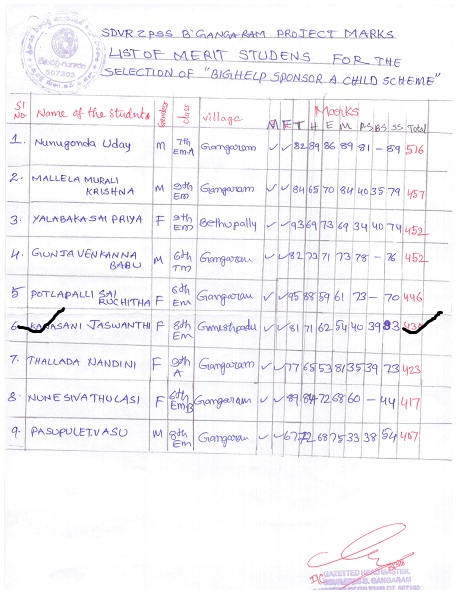 SDVR Z PSS B'GANGARAM PROJECT MARKS
LIST OF MERIT STUDENS FOR THE
SELECTION OF "BIGHELP SPONSOR A CHILD SCHEME"
507303
Sl No Name of the Students Gender class village Marks
M E T H E M P.S B.S SS Total
1. Nunugonda Uday M 7th EM-A Gangaram ✓ ✓ 82 89 86 89 81 - 89 516
2. MALLELA MURALI KRISHNA M 9th EM Gangaram ✓ ✓ 84 65 70 84 40 35 79 457
3. YALABAKA SAI PRIYA F 9th EM Bethupally ✓ ✓ 93 69 73 69 34 40 74 452
4. GUNJA VENKANNA BABU M 6th TM Gangaram ✓ ✓ 82 73 71 73 78 - 76 452
5 POTLAPALLI SAI RUCHITHA F 6th Em Gangaram ✓ ✓ 95 88 59 61 73 - 70 446
6. KANASANI JASWANTHI F 8th Em ✓ ✓ 81 71 62 54 40 39 83
7. THALLADA NANDINI F 9th A Gangaram ✓ ✓ 77 65 53 81 35 39 73 423
8. NUNE SIVA THULASI F 6th Em B Gangaram ✓ ✓ 89 84 72 68 60 - 44 417
9. PASUPULETI.VASU M 8th Em Gangaram ✓ ✓ 67 72 68 75 33 38 54 407
GAZETTED HEADMASTER
B. GANGARAM